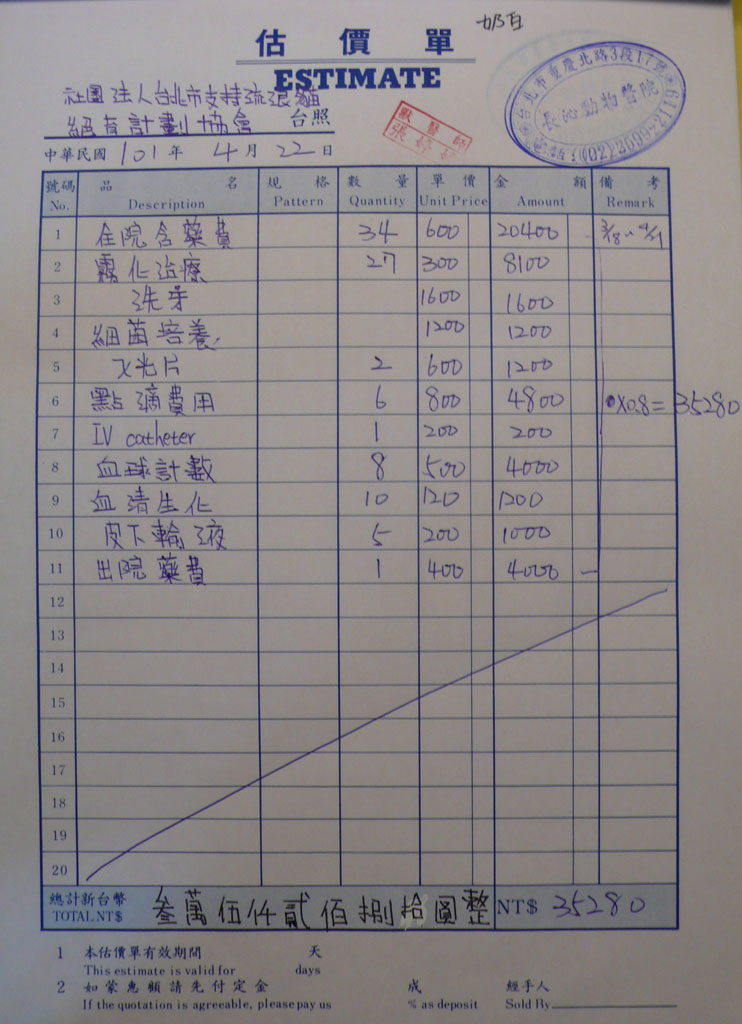 奶
估價單
ESTIMATE
社團法人台北市支持流浪貓
絕育計劃協會 台照
獸醫師
張
台北市重慶北路3段17號
長沁動物醫院
中華民國 101 年 4 月 22 日
號碼 品名 規格 數量 單價 金額 備考
No. Description Pattern Quantity Unit Price Amount Remark
1 住院含藥費 34 600 20400
2 霧化治療 27 300 8100
3 洗牙 1600 1600
4 細菌培養 1200 1200
5 X光片 2 600 1200
6 點滴費用 6 800 4800 X0.8=35280
7 IV catheter 1 200 200
8 血球計數 8 500 4000
9 血清生化 10 120 1200
10 皮下輸液 5 200 1000
11 出院藥費 1 400 4000
12
13
14
15
16
17
18
19
20
總計新台幣 叁萬伍仟貳佰捌拾圓整 NT$ 35280
TOTAL NT$
1 本估價單有效期間 天
This estimate is valid for days
2 如蒙惠顧請先付定金 成 經手人
If the quotation is agreeable, please pay us % as deposit Sold By